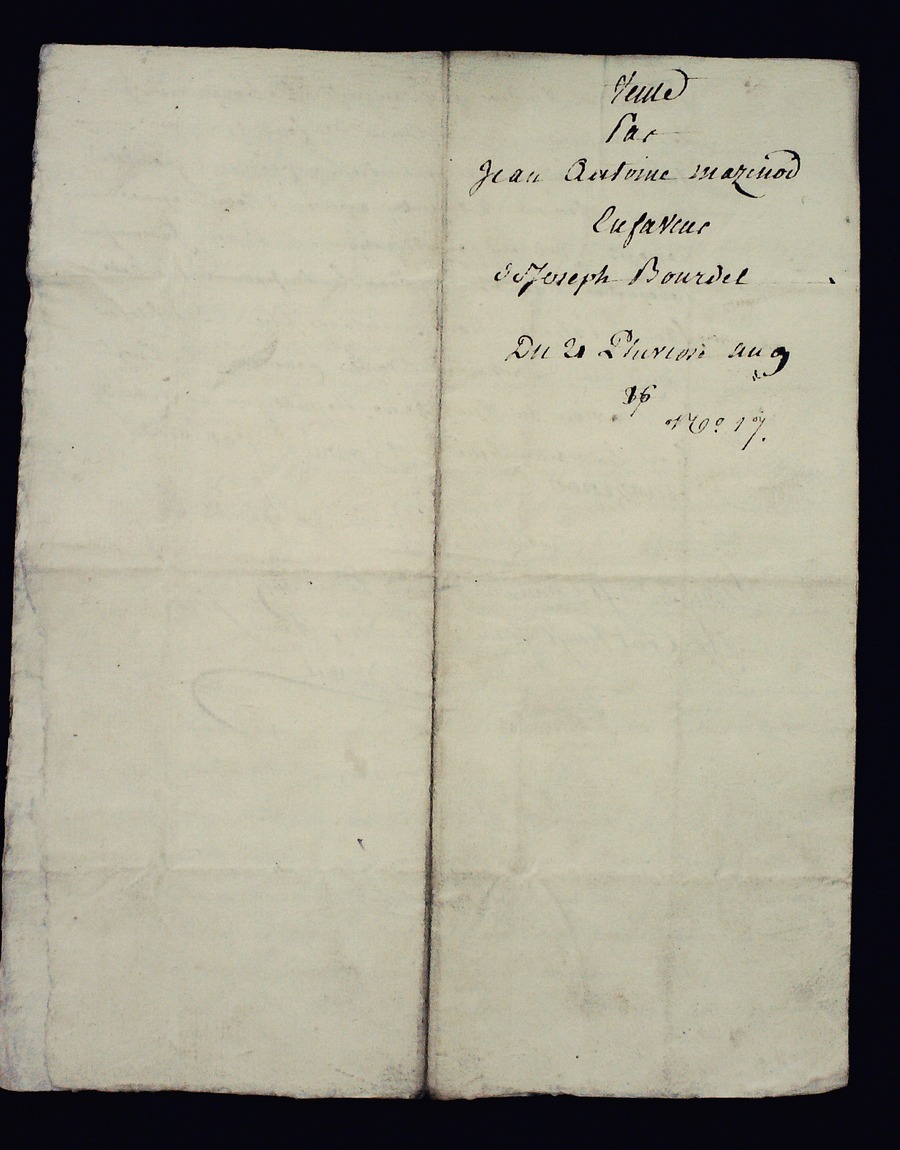 Vente
Par
Jean Antoine mazenod
Enfaveur
de Joseph Bourdel
Du 21 Pluviose an 9
16
No. 17.